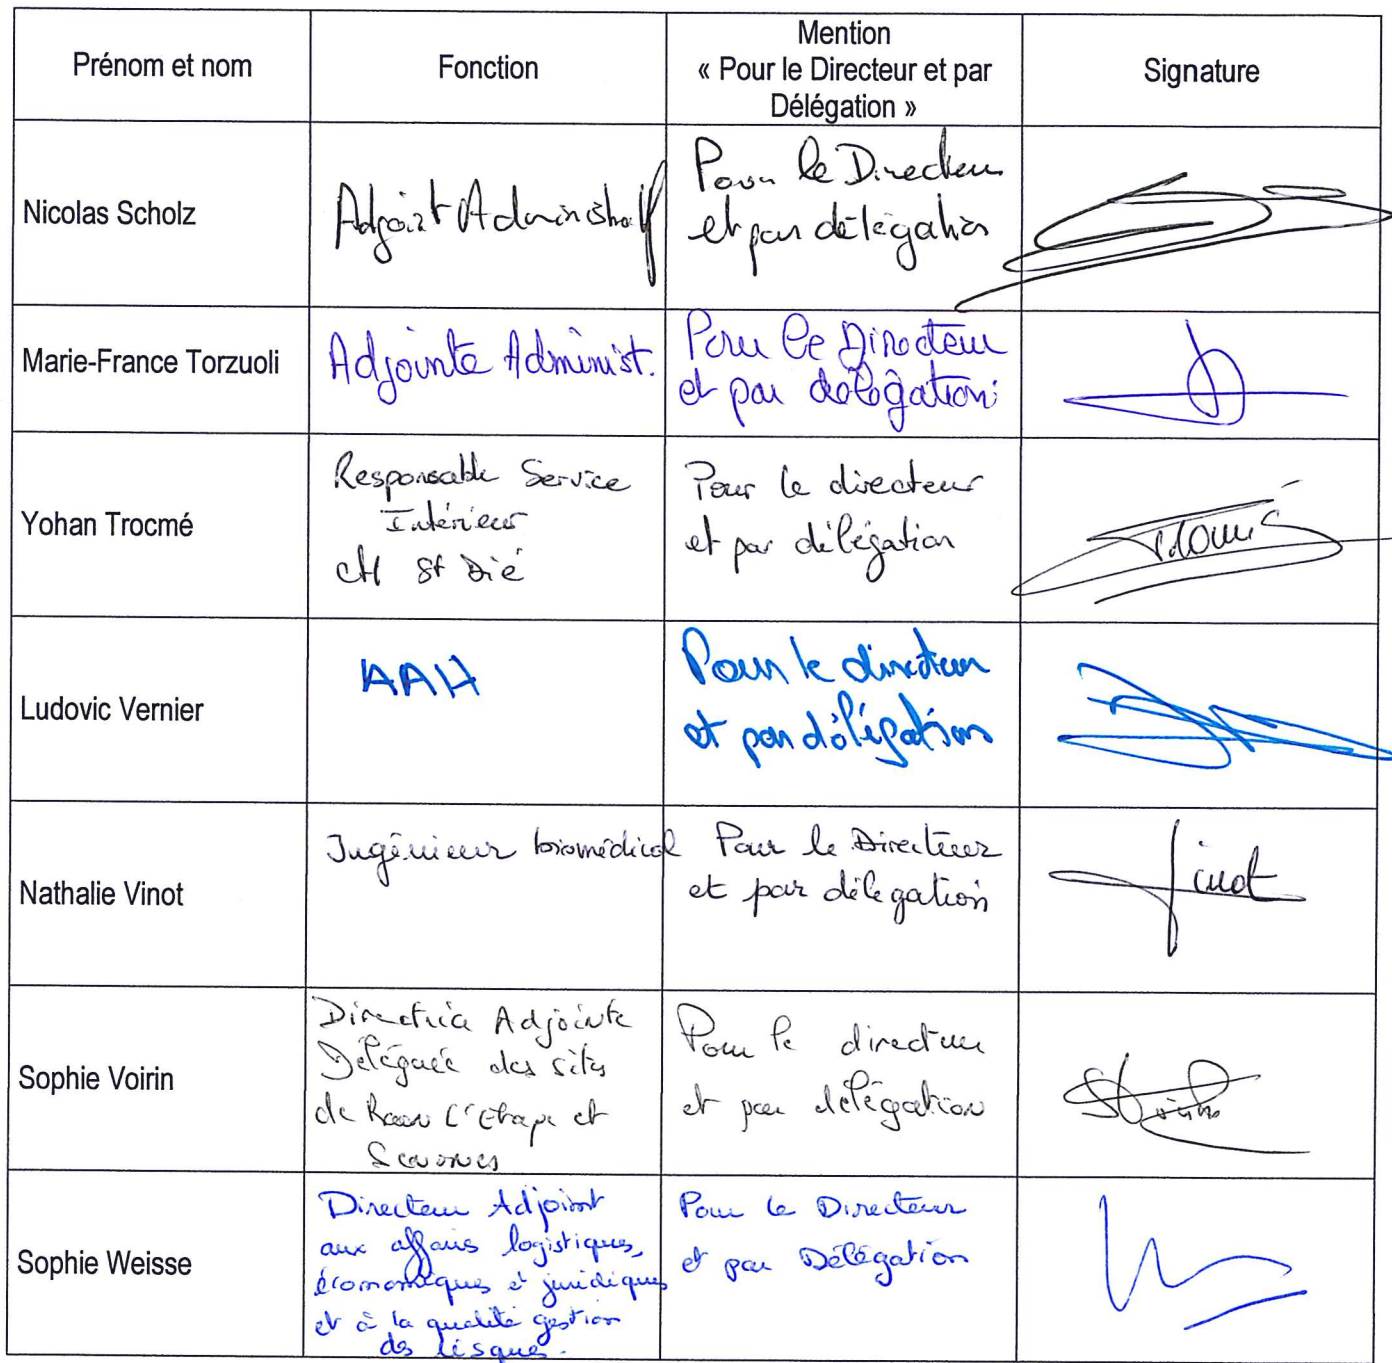 Prénom et nom
Fonction
Mention
« Pour le Directeur et par
Délégation »
Signature
Nicolas Scholz
Adjoint Administratif
Pour le Directeur
et par délégation
Marie-France Torzuoli
Adjointe Administ.
Pour le Directeur
et par délégation
Yohan Trocmé
Responsable Service
Intérieur
CH St Dié
Pour le directeur
et par délégation
Ludovic Vernier
AAH
Pour le directeur
et par délégation
Nathalie Vinot
Ingénieur biomédical
Pour le Directeur
et par délégation
Vinot
Sophie Voirin
Directrice Adjointe
Déléguée des sites
de Raon L'Etape et
Senones
Pour le directeur
et par délégation
Sophie Weisse
Directeur Adjoint
aux affaires logistiques,
économiques et juridiques
et à la qualité gestion
des risques.
Pour le Directeur
et par Délégation